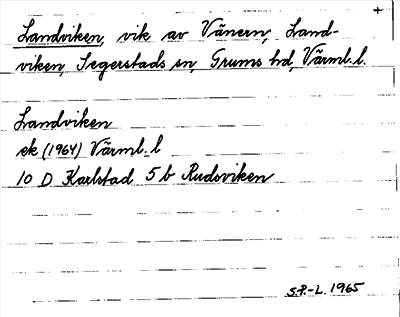 +
Landviken, vik av Vänern, Land-
viken, Segerstads sn, Grums hd, Värml. l.
Landviken
ek (1964) Värml. l
10 D Karlstad 5 b Rudsviken
S.P.-L. 1965